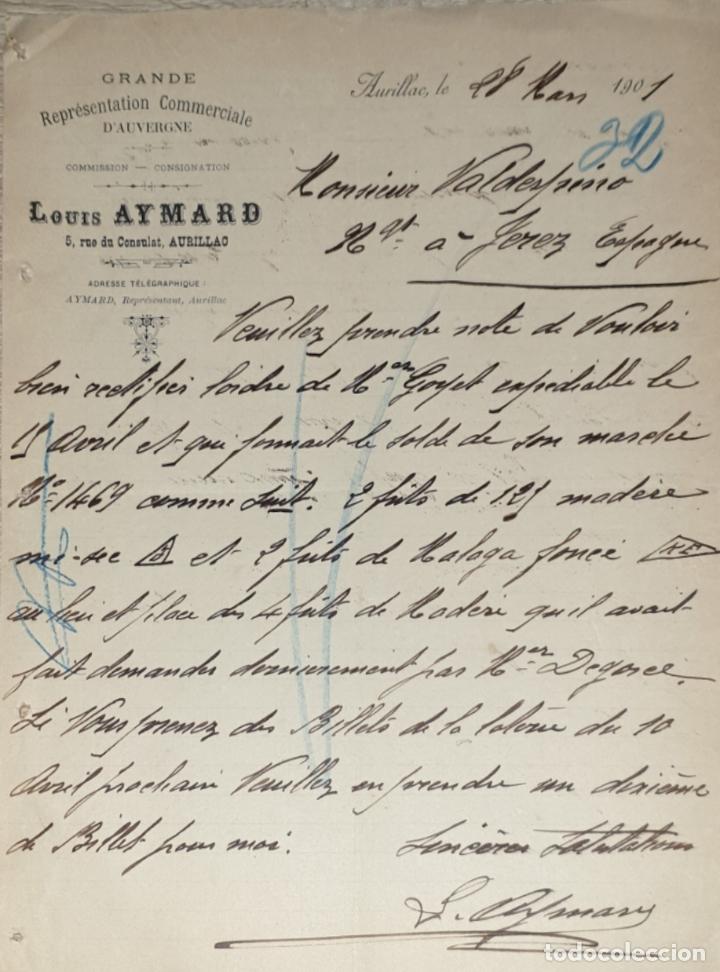 GRANDE
Représentation Commerciale
D'AUVERGNE
COMMISSION — CONSIGNATION
LOUIS AYMARD
5, rue du Consulat, AURILLAC
ADRESSE TÉLÉGRAPHIQUE :
AYMARD, Représentant, Aurillac
Aurillac, le 28 Mars 1901
32
Monsieur Valdespino
Ngt à Jerez Espagne
Veuillez prendre note de Vouloir
bien rectifier l'ordre de Mer Goyet expédiable le
15 Avril et qui formait le solde de son marché
No 1469 comme suit. 2 futs de 125 madère
mi-sec et 2 futs de Malaga foncé
au lieu et place des 4 futs de Madère qu'il avait
fait demander dernierement par Mer Degorce.
Si Vous prenez des Billets de la loterie du 10
Avril prochain Veuillez en prendre un dixième
de Billet pour moi. Sincères Salutations
L. Aymard
todocoleccion